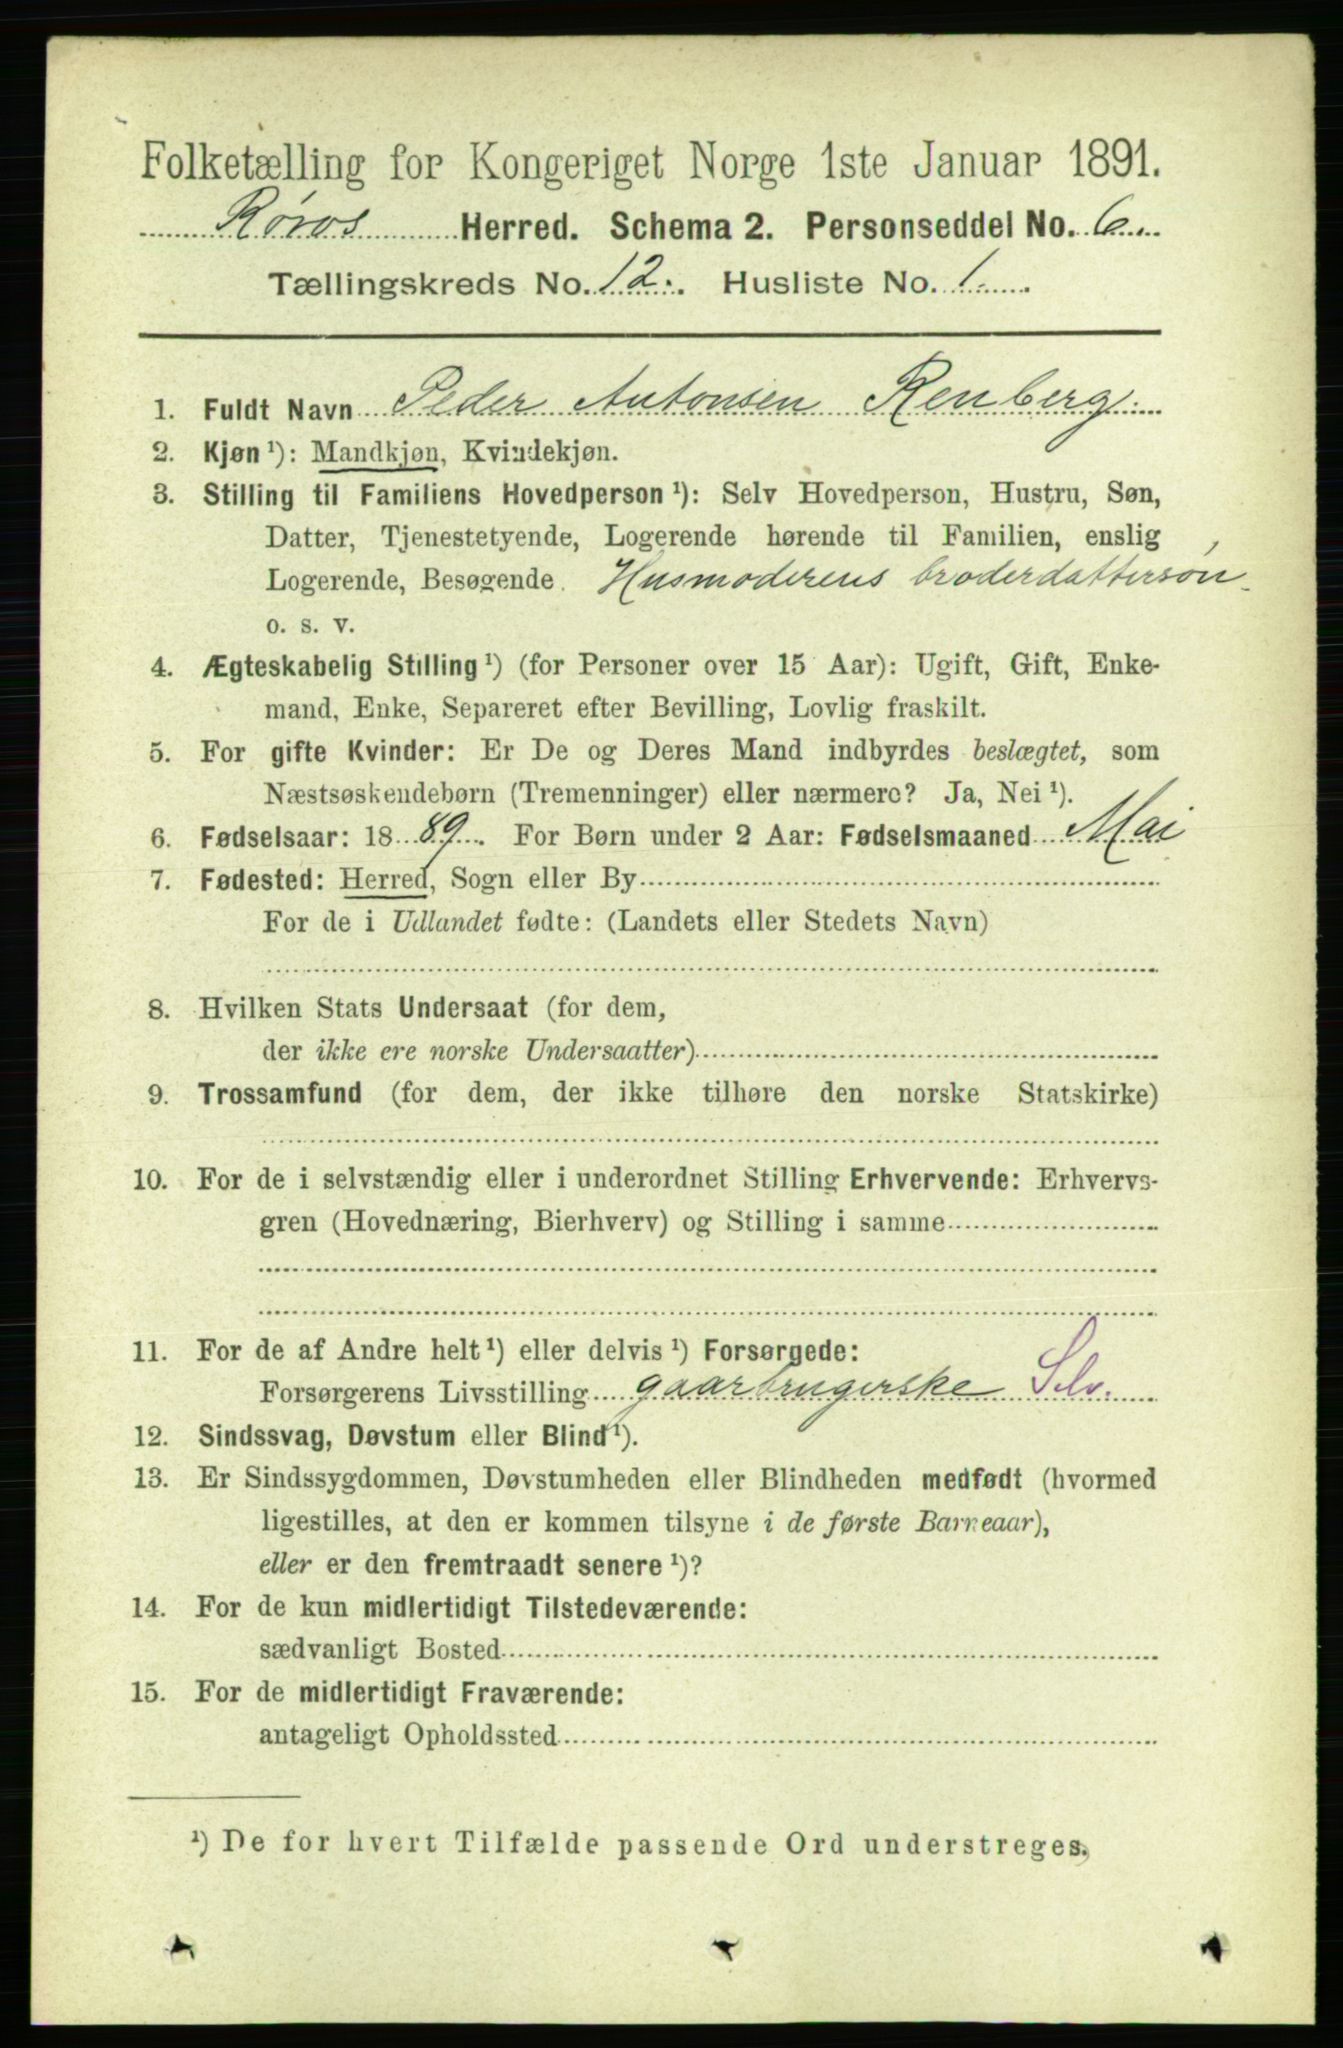 Folketælling for Kongeriget Norge 1ste Januar 1891.
Røros Herred. Schema 2. Personseddel No. 6
Tællingskreds No. 12. Husliste No. 1
1. Fuldt Navn Peder Antonsen Renberg.
2. Kjøn ¹): Mandkjøn, Kvindekjøn.
3. Stilling til Familiens Hovedperson ¹): Selv Hovedperson, Hustru, Søn,
Datter, Tjenestetyende, Logerende hørende til Familien, enslig
Logerende, Besøgende. Husmoderens broderdattersøn
o. s. v.
4. Ægteskabelig Stilling ¹) (for Personer over 15 Aar): Ugift, Gift, Enke-
mand, Enke, Separeret efter Bevilling, Lovlig fraskilt.
5. For gifte Kvinder: Er De og Deres Mand indbyrdes beslægtet, som
Næstsøskendebørn (Tremenninger) eller nærmere? Ja, Nei ¹).
6. Fødselsaar: 1889. For Børn under 2 Aar: Fødselsmaaned Mai
7. Fødested: Herred, Sogn eller By
For de i Udlandet fødte: (Landets eller Stedets Navn)
8. Hvilken Stats Undersaat (for dem,
der ikke ere norske Undersaatter)
9. Trossamfund (for dem, der ikke tilhøre den norske Statskirke)
10. For de i selvstændig eller i underordnet Stilling Erhvervende: Erhvervs-
gren (Hovednæring, Bierhverv) og Stilling i samme
11. For de af Andre helt ¹) eller delvis ¹) Forsørgede:
Forsørgerens Livsstilling gaarbrugerske Selv.
12. Sindssvag, Døvstum eller Blind ¹).
13. Er Sindssygdommen, Døvstumheden eller Blindheden medfødt (hvormed
ligestilles, at den er kommen tilsyne i de første Barneaar),
eller er den fremtraadt senere ¹)?
14. For de kun midlertidigt Tilstedeværende:
sædvanligt Bosted
15. For de midlertidigt Fraværende:
antageligt Opholdssted
¹) De for hvert Tilfælde passende Ord understreges.